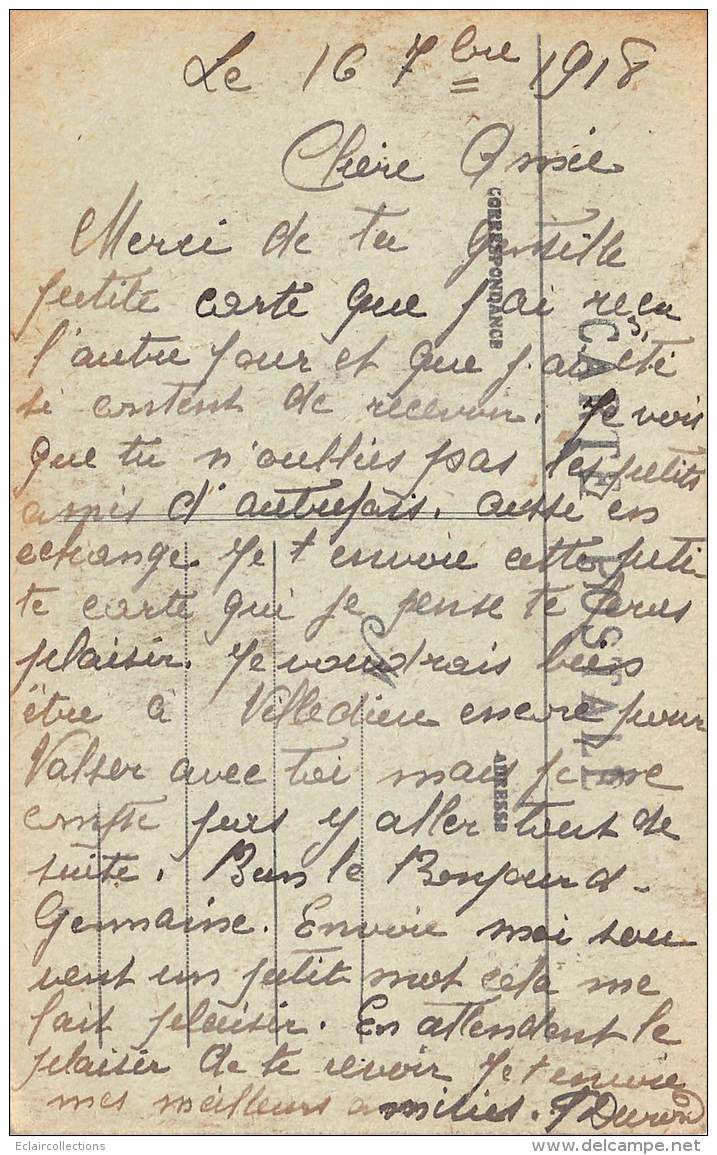 Le 16 7bre 1918
Chère Amie
Merci de ta gentille
petite carte que j'ai reçu
l'autre jour et que j'ai été
si content de recevoir. Je vois
que tu n'oullies pas les petits
amis d'autrefois. aussi en
echange. Je t envoie cette peti-
te carte qui je pense te feras
plaisir. Je voudrais bien
être à Villedieu encore pour
Valser avec toi mais je ne
compte pas y aller tout de
suite. Bien le Bonjour d-
Germaine. Envoie moi sou
vent un petit mot cela me
fait plaisir. En attendent le
plaisir de te revoir Je t envoie
mes meilleurs amitiés.
CORRESPONDANCE
CARTE POSTALE
ADRESSE
Eclaircollections